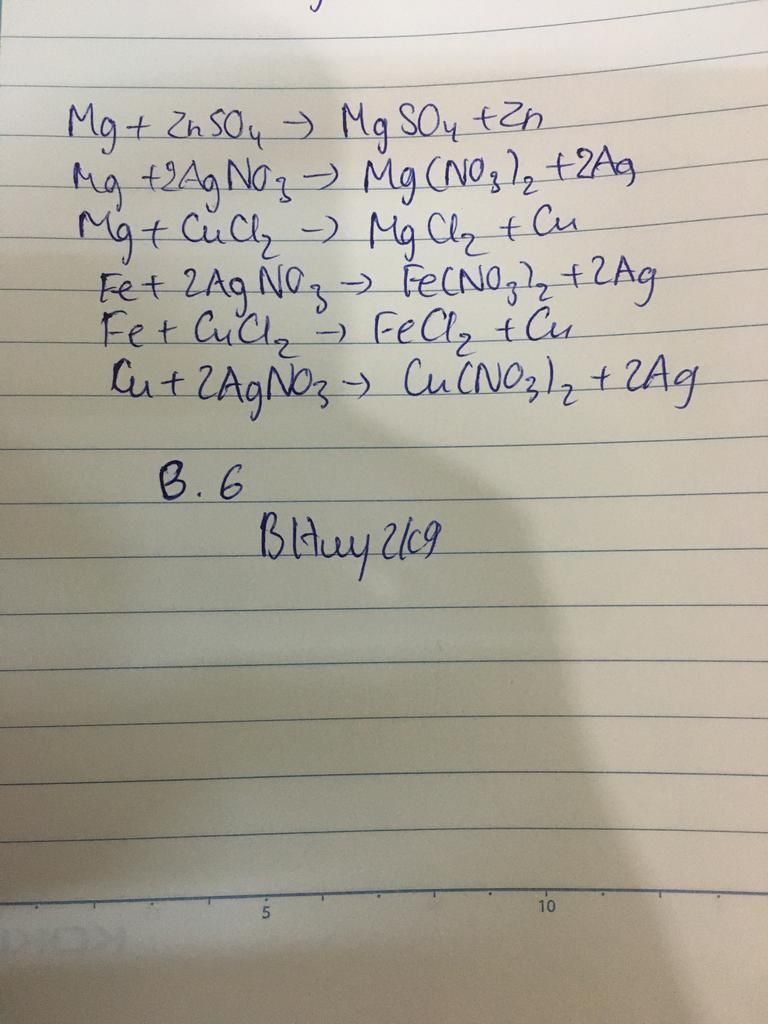 Mg + ZnSO₄ → MgSO₄ + Zn
Mg + 2AgNO₃ → Mg(NO₃)₂ + 2Ag
Mg + CuCl₂ → MgCl₂ + Cu
Fe + 2AgNO₃ → Fe(NO₃)₂ + 2Ag
Fe + CuCl₂ → FeCl₂ + Cu
Cu + 2AgNO₃ → Cu(NO₃)₂ + 2Ag
B. 6
BHuy2k9
5 10